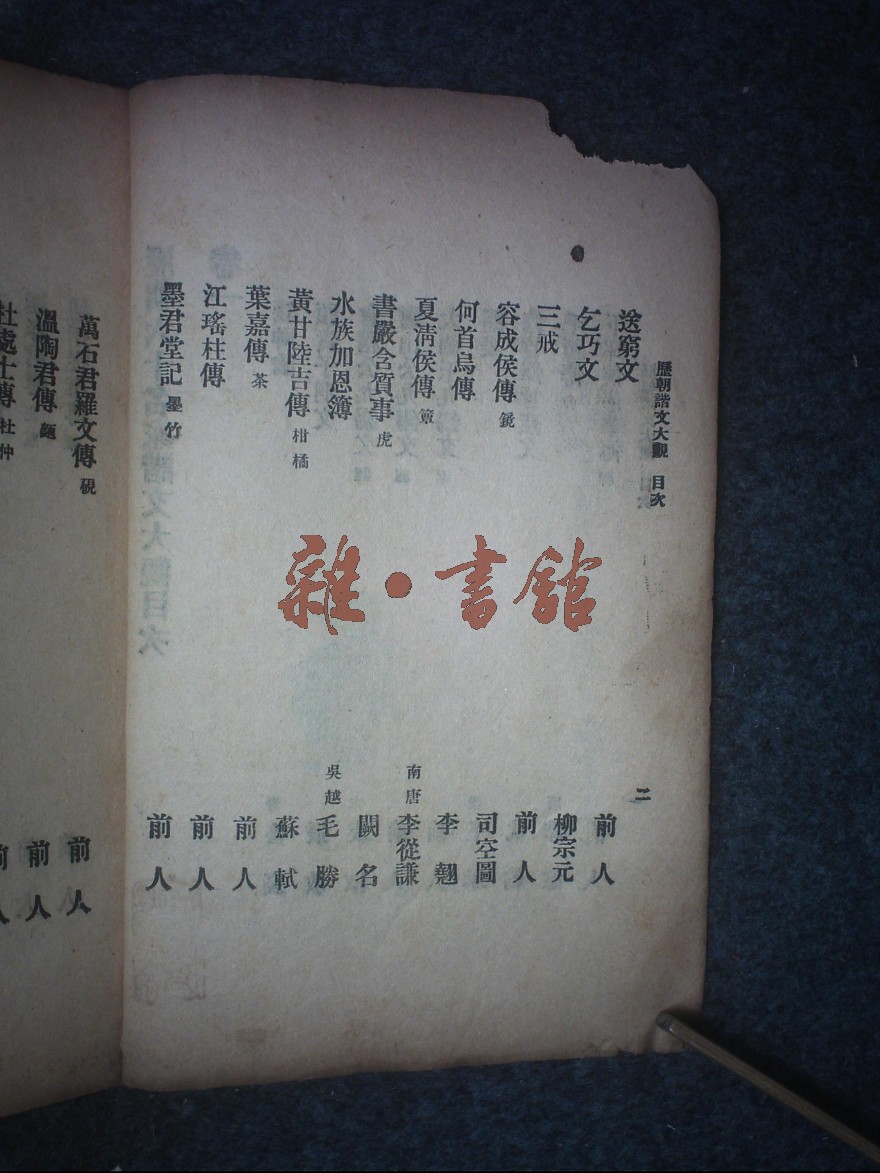 歷朝諧文大觀 目次 二
送窮文 前人
乞巧文 柳宗元
三戒 前人
容成侯傳 鏡 司空圖
何首烏傳 李翺
夏清侯傳 簟 南唐 李從謙
書嚴含質事 虎 闕名
水族加恩簿 吳越 毛勝
黃甘陸吉傳 柑橘 蘇軾
葉嘉傳 茶 前人
江瑤柱傳 前人
墨君堂記 墨竹 前人
萬石君羅文傳 硯 前人
溫陶君傳 前人
杜處士傳 杜仲 前人
雜·書館